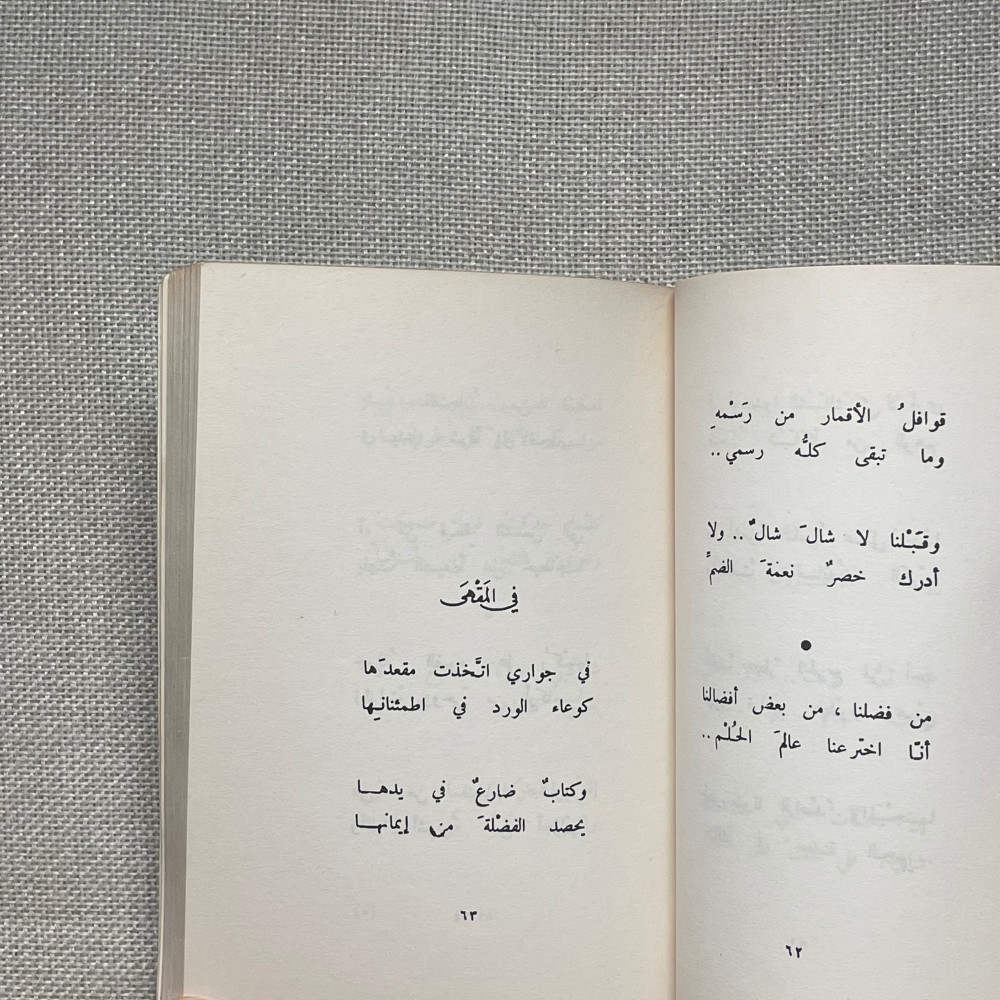 قوافلُ الأقمار من رَسْمِهِ
وما تبقى كلُّه رسمي..
وقَبْلنا لا شالَ شالٌ.. ولا
أدرك خصرٌ نعمةَ الضمِّ
●
من فضلنا، من بعض أفضالنا
أنّا اخترعنا عالمَ الحُلْمِ..
٦٢
في المَقْهَى
في جواري اتَّخذت مقعدَها
كوعاء الورد في اطمئنانِها
وكتابٌ ضارعٌ في يدها
يحصد الفضْلةَ من إيمانها
٦٣